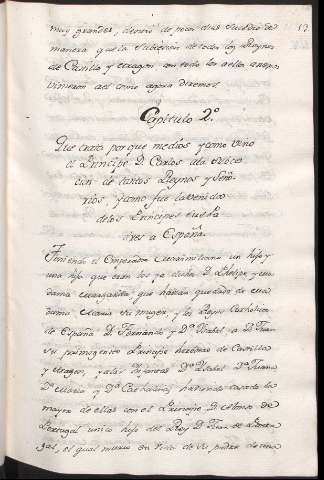 12
muy grandes, dentro de pocos dias sucedio de
manera que la Subcesion de todos los Reynos
de Castilla y Aragon con todo los a ellos
vinieron asi como agora diremos.
Capitulo 2º
Que trata porque medios y como vino
el Principe D. Carlos ala subce-
cion de tantos Reynos y Seño-
rios, y como fue la venida
delos Principes sus Pa
dres a España.
Teniendo el Emperador Maximiliano un hijo y
una hija que eran los ya dichos D. Phelipe, y ma-
dama Margarita que habian quedado de ma-
dama Maria su muger, y los Reyes Catholicos
de España D. Fernando y Dª Isabel a D. Juan
su primogenito Principe heredero de Castilla
y Aragon, y alas Infantas Dª Isabel Dª Juana
Dª Maria y Dª Cathalina, habiendo casado la
mayor de ellas con el Principe D. Alonso de
Portugal unico hijo del Rey D. Juan de Portu-
gal, el qual murio en vida de su padre de una